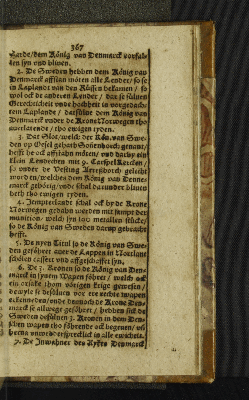 367
Harde/dem König van Denmarck vorfal-
len syn und bliven.
2. De Sweden hebben dem König van
Denmarck afstan möten alle Lender / so se
in Laplandt van den Rüssen bekamen / so
wol ock de anderen Lender / dar se sülven
Gerechticheit unde hochheit in vorgedach-
tem Laplande / datsülve dem König van
Denmarck under de Krone Norwegen tho
averlatende / tho ewigen tyden.
3. Dat Slot / welck der Kön. van Swe-
den up Oesel gehath Sonenborch genant /
hefft he ock afstahn möten / und darby ein
klein Lendeken mit 9. Caspel Kercken /
so under de Vesting
worden / welchen dem König van Denne-
marck gehörig / unde schal darunder blinen
beth tho ewigen tyden.
4. Jempterlande schal ock by de Krone
Norwegen gedahn werden mit sampt der
munition welck syn two metallen stücke /
so de König van Sweden darup gebracht
hefft.
5. De nyen Titul so de König van Swe-
den geföhret aver de Lappen in Nortlant
schölen casseret und affgeschaffet syn.
6. De 3. Kronen so de König van Den-
marck in synen Wapen föhret / welck ock
ein orsake tham vörigen krige gewesen /
dewyle se desülven vor ere rechte wapen
erkenneden / unde dennoch de Krone Den-
marck se allwege geföhret / hebben sick de
Sweden desülven 3. Kronen in dem Den-
schen wapen tho föhrende ock begeven / un
beena unwedderspreecklick in alle ewicheit.
7. De Inwahner des Rykes Denmarck